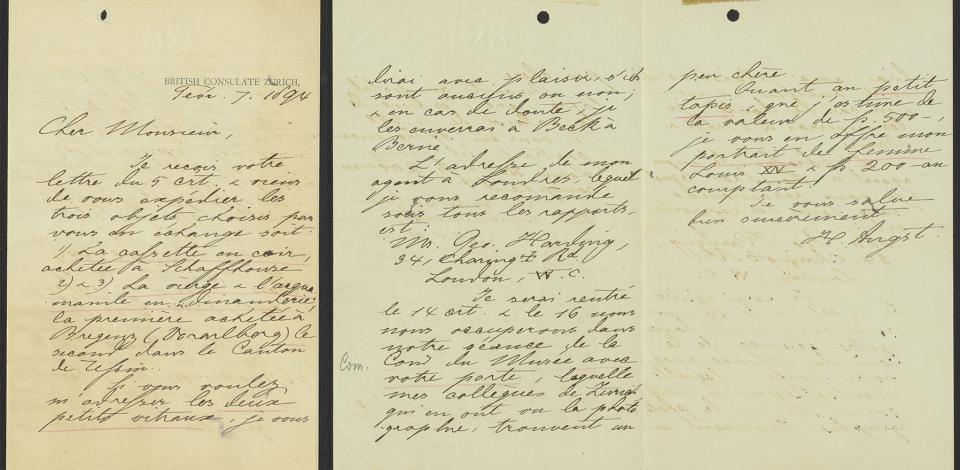 BRITISH CONSULATE ZÜRICH,
Fév. 7. 1894
Cher Monsieur,
Je reçois votre
lettre du 5 crt. & viens
de vous expédier les
trois objets choisis par
vous en échange soit:
1) La cassette en cuir,
achetée à Schaffhouse
2) & 3) La vierge & l'aqua-
manile en dinanderie,
la première achetée à
Bregenz (Vorarlberg) le
second dans le Canton
de Tessin.
Si vous voulez
m'adresser les deux
petits vitraux, je vous
dirai avec plaisir, s'ils
sont anciens ou non;
& en cas de doute, je
les enverrai à Beck à
Berne.
L'adresse de mon
agent à Londres, lequel
je vous recomande
sous tous les rapports,
est:
Mr. Geo. Harding,
34, Charing + Rd.
London, W.C.
Je serai rentré
le 14 crt. & le 16 nous
nous occuperons dans
notre séance de la
Com. du Musée avec
Com.
votre porte, laquelle
mes collègues de Zurich
qui en ont vu la photo-
graphie, trouvent un
peu chère.
Quant au petit
tapis, que j'estime de
la valeur de fr. 500-,
je vous en offre mon
portrait de femme
Louis XIV & fr. 200 au
comptant.
Je vous salue
bien sincèrement
H. Angst.